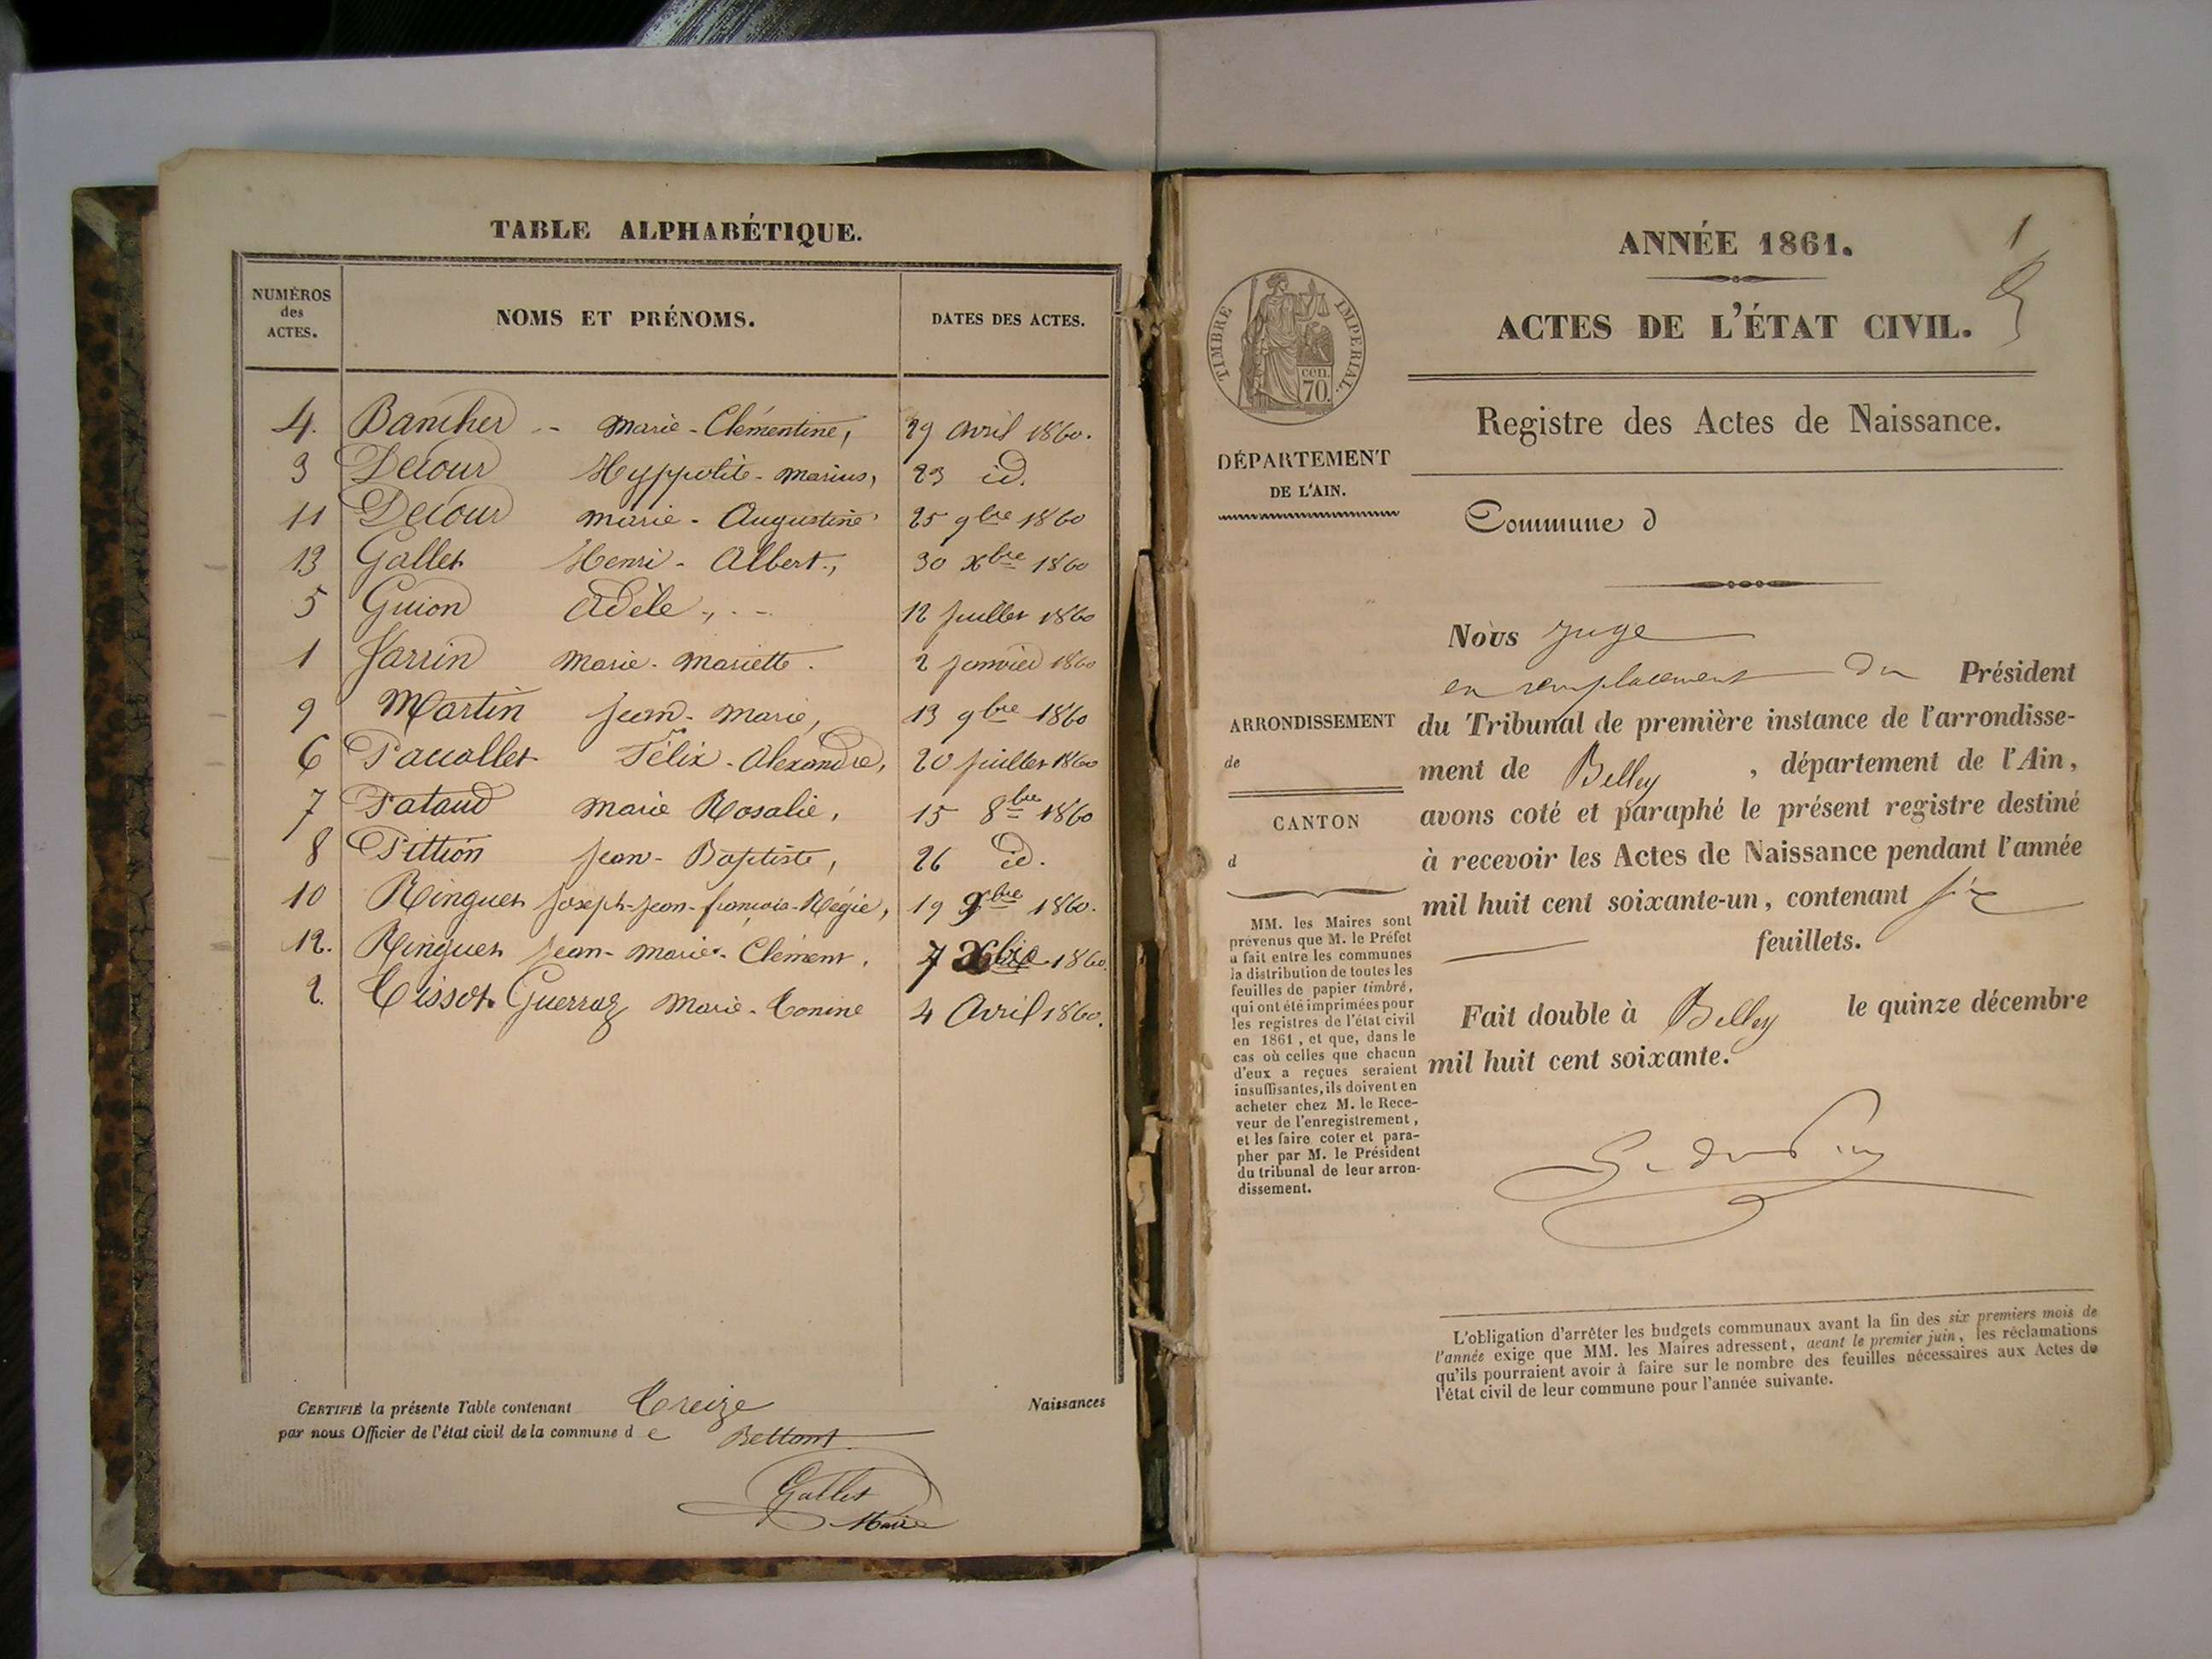 TABLE ALPHABÉTIQUE.
NUMÉROS des ACTES. NOMS ET PRÉNOMS. DATES DES ACTES.
4. Bancher -- Marie-Clémentine, 29 Avril 1860.
3 Decour Hyppolite-Marius, 23 id.
11 Decour Marie-Augustine 25 9bre 1860
13 Gallet Henri-Albert, 30 Xbre 1860
5 Guion Adèle, -- 12 Juillet 1860
1 Jarrin Marie-Mariette. 2 Janvier 1860
9 Martin Jean-Marie, 13 9bre 1860
6 Paccallet Félix-Alexandre, 20 Juillet 1860
7 Pataud Marie Rosalie, 15 8bre 1860
8 Pittion Jean-Baptiste, 26 id.
10 Ringuet Joseph-Jean-François-Régie, 19 9bre 1860.
12. Ringuet Jean-Marie-Clément. 7 Xbre 1860.
2. Tissot Guerraz Marie-Tonine 4 Avril 1860.
CERTIFIÉ la présente Table contenant Treize Naissances
par nous Officier de l'état civil de la commune de Bettant
Gallet
Maire
1
ANNÉE 1861.
ACTES DE L'ÉTAT CIVIL.
Registre des Actes de Naissance.
TIMBRE IMPERIAL.
cen.
70.
DÉPARTEMENT
DE L'AIN.
Commune d
ARRONDISSEMENT
de
CANTON
d
MM. les Maires sont
prévenus que M. le Préfet
a fait entre les communes
la distribution de toutes les
feuilles de papier timbré,
qui ont été imprimées pour
les registres de l'état civil
en 1861, et que, dans le
cas où celles que chacun
d'eux a reçues seraient
insuffisantes, ils doivent en
acheter chez M. le Rece-
veur de l'enregistrement,
et les faire coter et para-
pher par M. le Président
du tribunal de leur arron-
dissement.
Nous Juge
en remplacement du Président
du Tribunal de première instance de l'arrondisse-
ment de Belley, département de l'Ain,
avons coté et paraphé le présent registre destiné
à recevoir les Actes de Naissance pendant l'année
mil huit cent soixante-un, contenant six
feuillets.
Fait double à Belley le quinze décembre
mil huit cent soixante.
L'obligation d'arrêter les budgets communaux avant la fin des six premiers mois de
l'année exige que MM. les Maires adressent, avant le premier juin, les réclamations
qu'ils pourraient avoir à faire sur le nombre des feuilles nécessaires aux Actes de
l'état civil de leur commune pour l'année suivante.